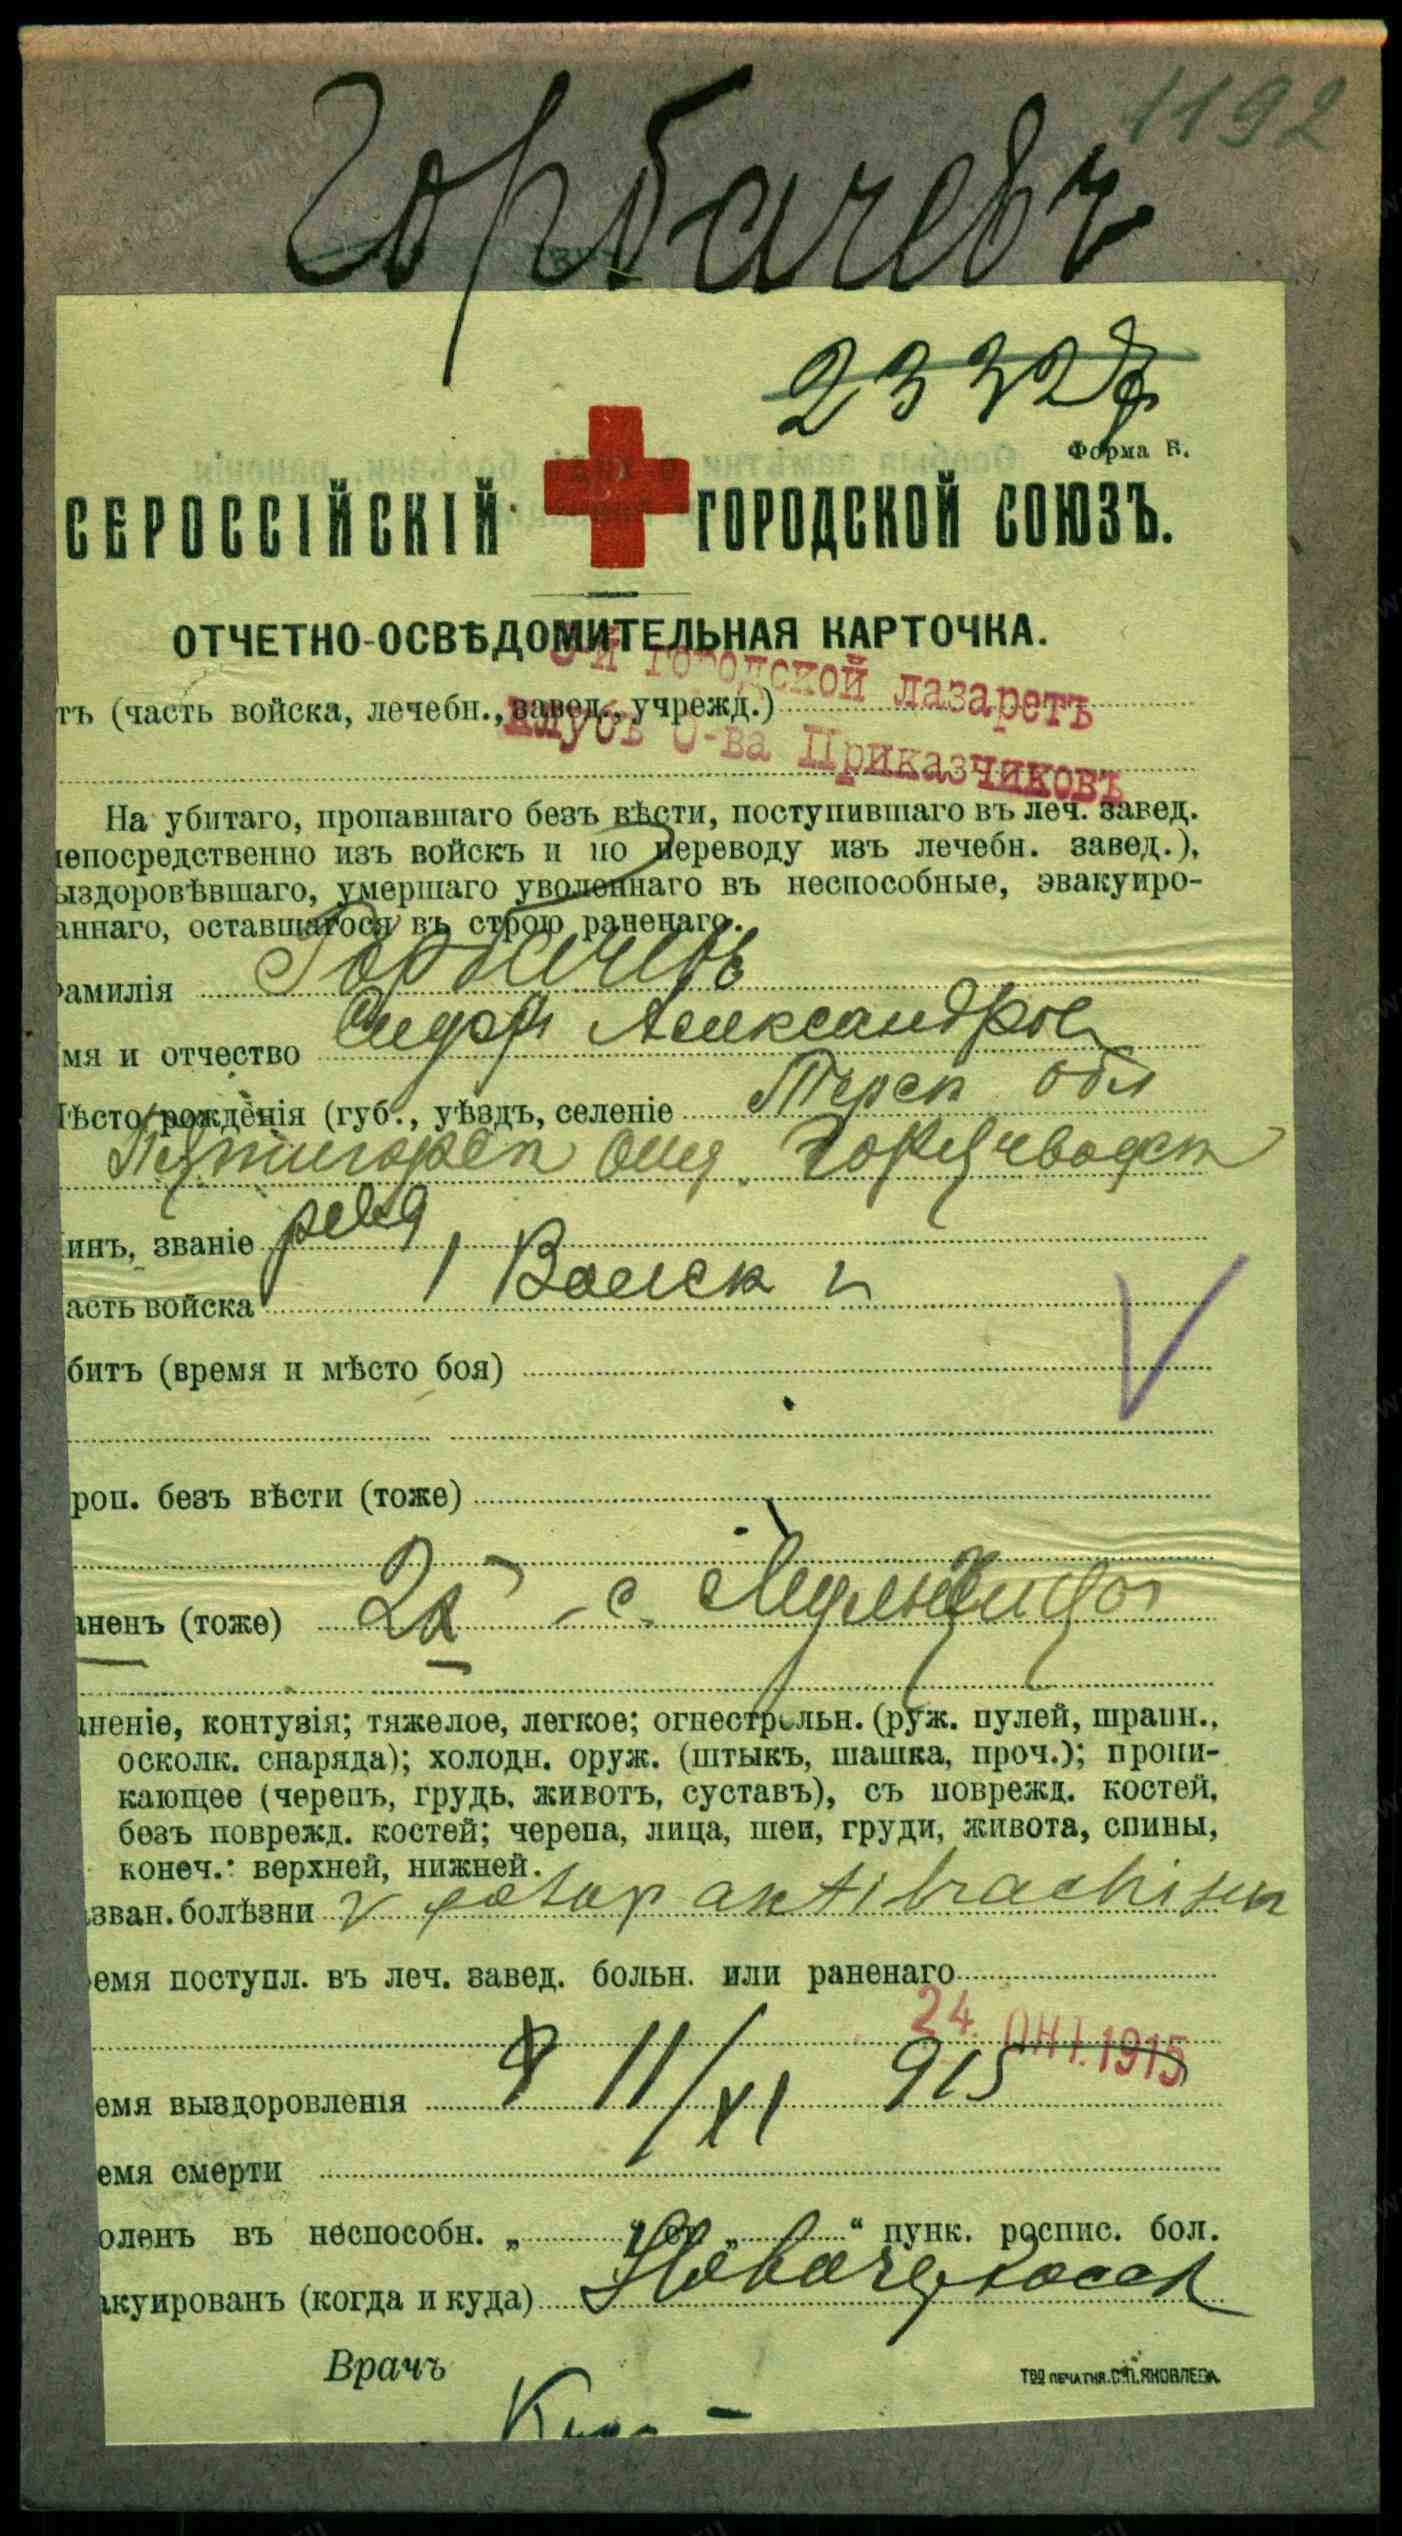 1192
Горбачевъ
Форма Б.
СЕРОССІЙСКІЙ ГОРОДСКОЙ СОЮЗЪ.
ОТЧЕТНО-ОСВѢДОМИТЕЛЬНАЯ КАРТОЧКА.
й городской лазаретъ
тъ (часть войска, лечебн., завед., учрежд.)
Клубъ О-ва Приказчиковъ
На убитаго, пропавшаго безъ вѣсти, поступившаго въ леч. завед.
непосредственно изъ войскъ и по переводу изъ лечебн. завед.),
ыздоровѣвшаго, умершаго уволеннаго въ неспособные, эвакуиро-
аннаго, оставшагося въ строю раненаго.
амилія Горбачевъ
мя и отчество Сидор Александров
ѣсто рожденія (губ., уѣздъ, селеніе Терск обл
Пятигорск отд Горячеводск
инъ, званіе ряд
асть войска 1 Волск п
битъ (время и мѣсто боя)
роп. безъ вѣсти (тоже)
аненъ (тоже) с.
неніе, контузія; тяжелое, легкое; огнестрѣльн. (руж. пулей, шрапн.,
осколк. снаряда); холодн. оруж. (штыкъ, шашка, проч.); прони-
кающее (черепъ, грудь, животъ, суставъ), съ поврежд. костей,
безъ поврежд. костей; черепа, лица, шеи, груди, живота, спины,
конеч.: верхней, нижней.
азван. болѣзни antibrachi
емя поступл. въ леч. завед. больн. или раненаго
24 ОКТ. 1915
емя выздоровленія 11/XI 915
емя смерти
оленъ въ неспособн. „ „ “ пунк. роспис. бол.
акуированъ (когда и куда) Новочеркасск
Врачъ
Тво ПЕЧАТНЯ С.П. ЯКОВЛЕВА